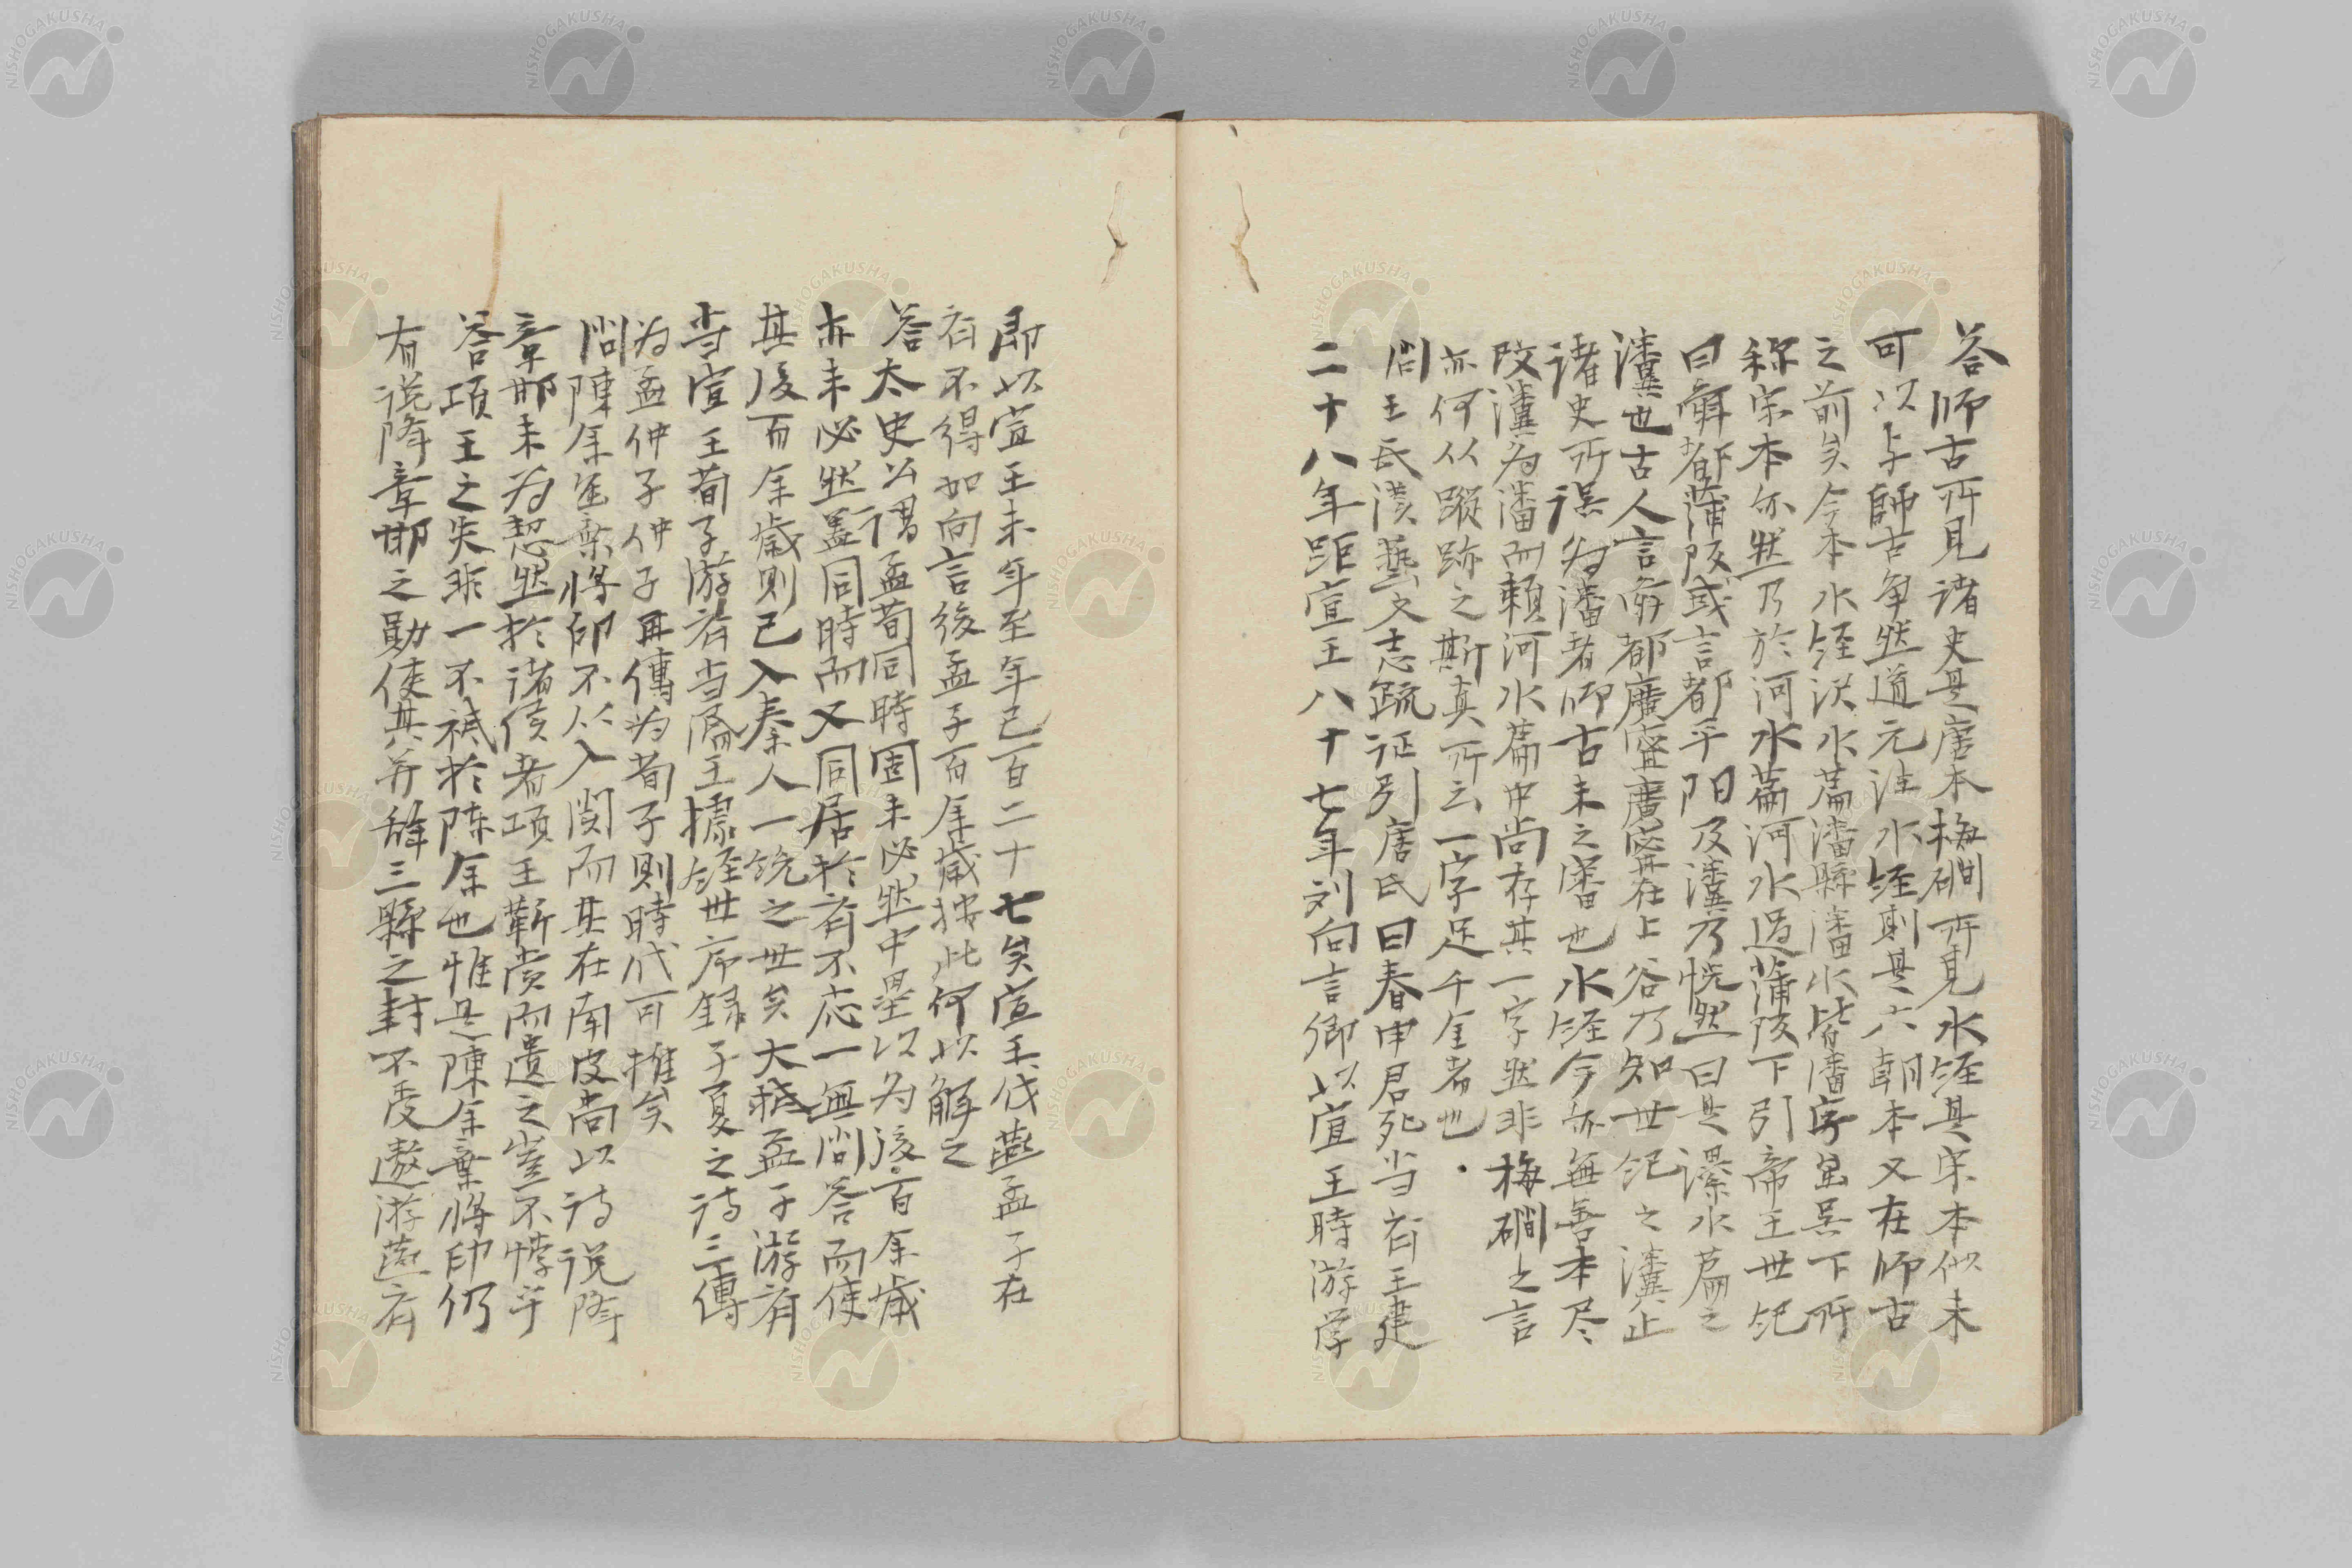 答師古所見諸史是唐本梅磵所見水経是宋本似未
可以与師古争然道元注水経則是六朝本又在师古
之前矣今本水経㶟水篇潘縣潘水皆潘字矣吴下所
称宋本亦然乃於河水篇河水過蒲阪下引帝王世紀
曰舜都蒲阪或言都平阳及瀵乃恍然曰是漯水篇之
瀵也古人言舜都廣寧廣寧在上谷乃知世紀之瀵止
諸史所误为潘者师古未之審也水経今亦無善本尽
改瀵为潘而頼河水篇中尚存其一字然非梅磵之言
亦何从蹤跡之斯真所云一字足千金者也
問王氏漢藝文志疏证引唐氏曰春申君死当齐王建
二十八年距宣王八十七年刘向言卿以宣王時游学
即以宣王末年至年已百二十七矣宣王伐燕孟子在
齐不得如向言後孟子百余歲按此何以解之
答太史公谓孟荀同時固未必然中壘以为後百余歲
亦未必然盖同時而又同居於齐不应一無問答而使
其後百余歲则已入秦人一統之世矣大抵孟子游齐
当宣王荀子游齐当湣王據経世序録子夏之诗三傳
为孟仲子仲子再傳为荀子则時代可推矣
問陳余寔棄将印不从入関而其在南皮尚以诗说降
章邯未为恝然於諸侯者項王靳赏而遗之豈不悖乎
答項王之失非一不祗於陈余也惟是陳余棄將印仍
有说降章邯之勛使其并辞三縣之封不受遨游燕齐